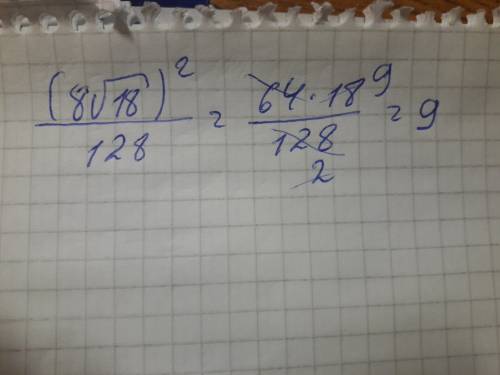 (8√18)² / 128 = 64·18 9 / 128 2 = 9